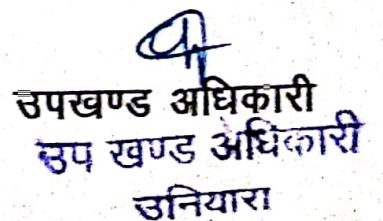 उपखण्ड अधिकारी
उप खण्ड अधिकारी
उनियारा